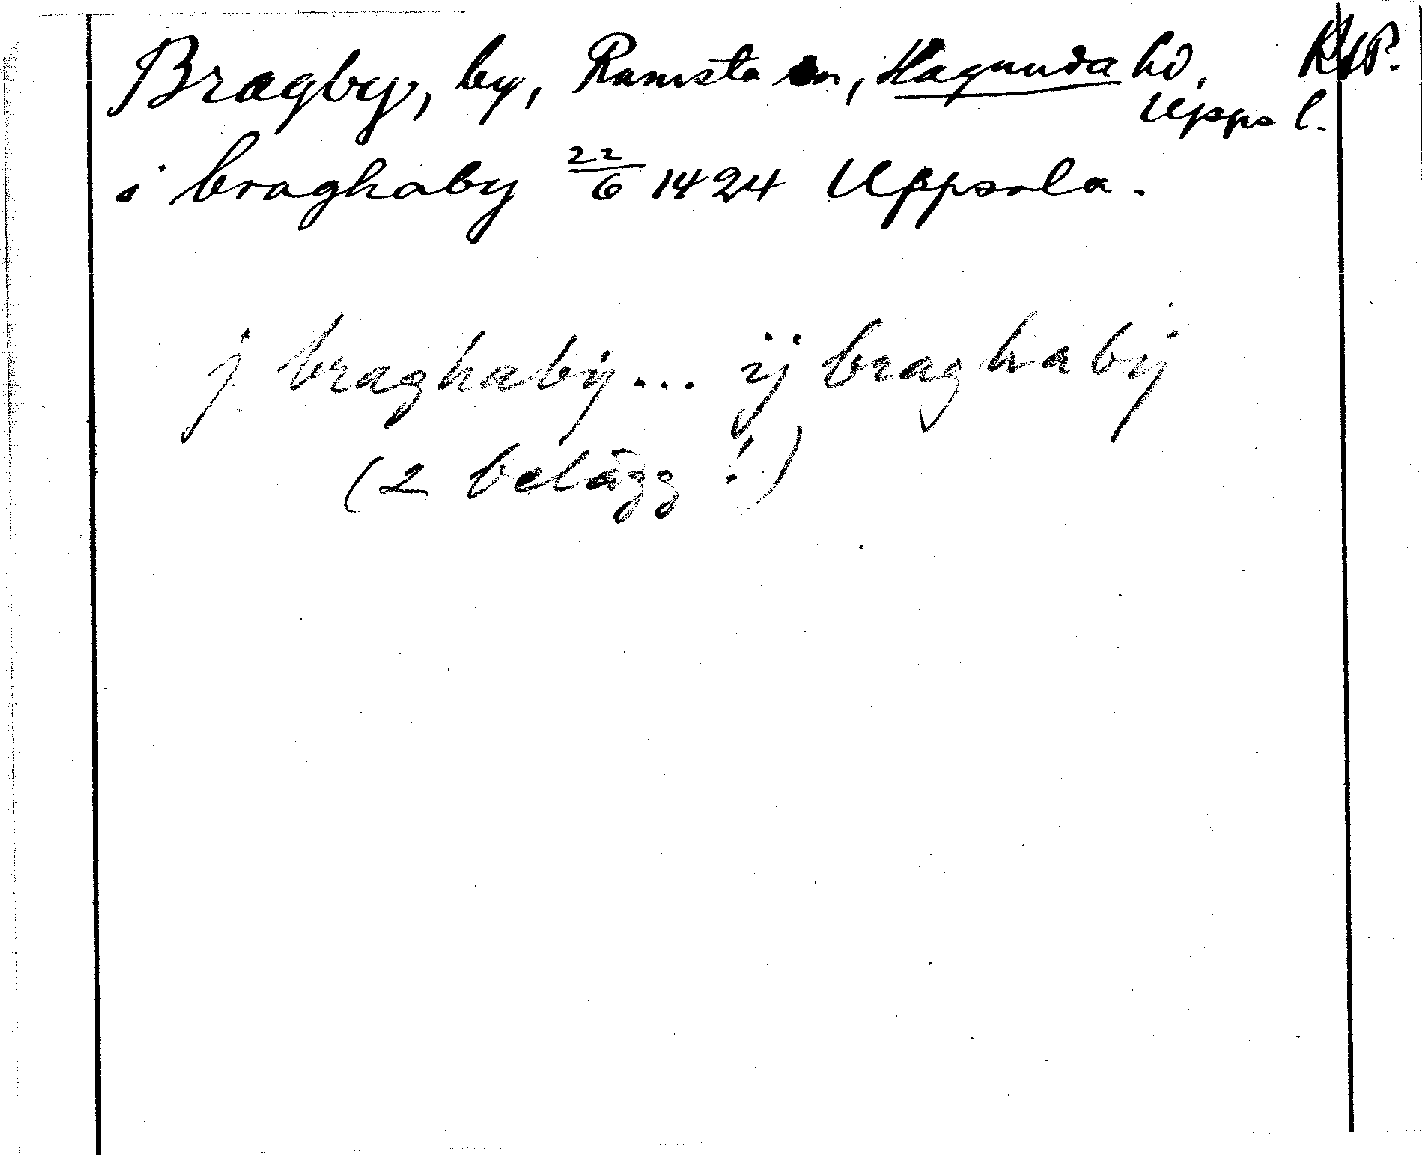 Bragby, by, Ramsta sn, Hagunda hd, RAP.
Upps l.
i braghaby 22/6 1424 Uppsala.
j braghaby... ij braghaby
(2 belägg!)